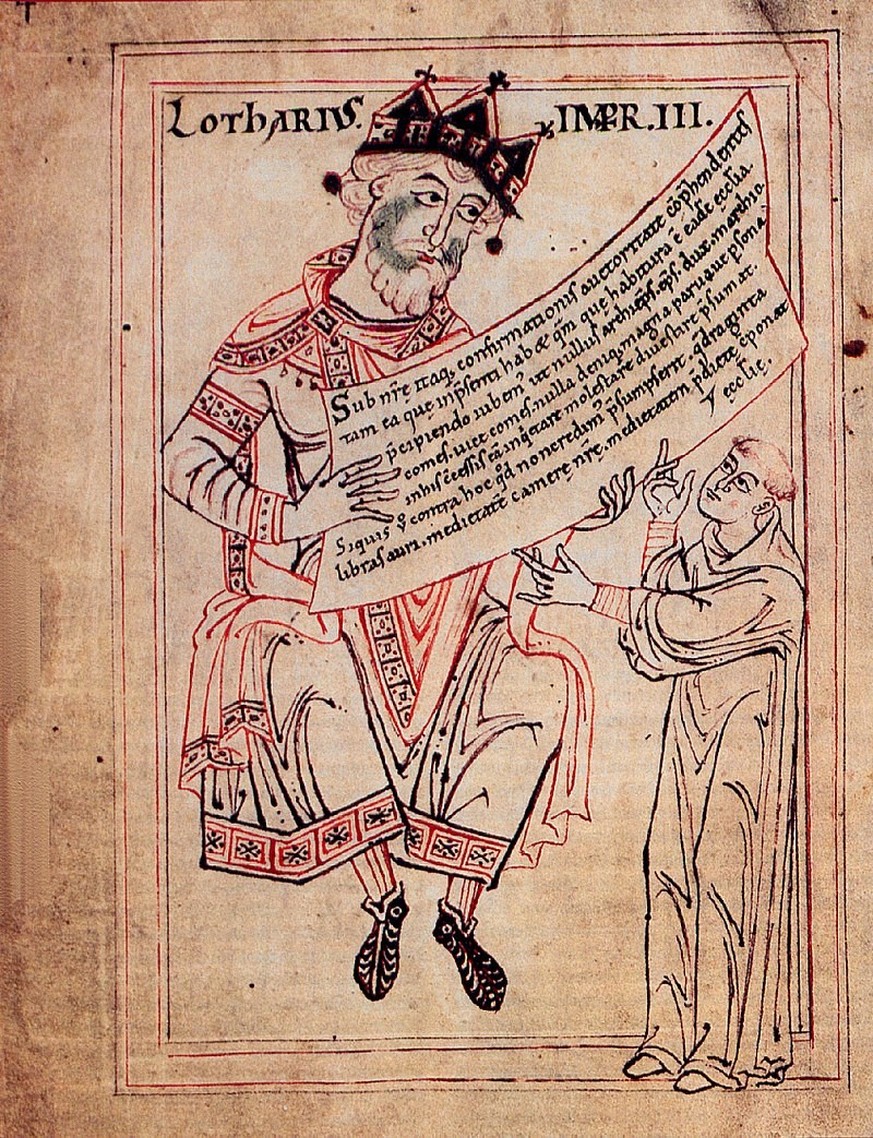 LOTHARIUS. IMPR. III.
Sub nr̄e itaq; confirmationis auctoritate cōp̄hendentes
tam ea que inp̄senti hab& q̄m quę habitura ē eadē ęcclia.
p̄cipiendo iubem' ut nullus archiep̄s. ep̄s. dux. marchio.
comes. uicecomes. nulla deniq; magna parua ut psona
inhis inq̄etare molestare diuestire p̄sumat.
Siquis v̊ contra hoc qd̄ non credim' p̄sumpserit. q̄draginta
libras auri. medietatē camerę nr̄ę. medietatem p̄dictę cōponat
ęcclię.